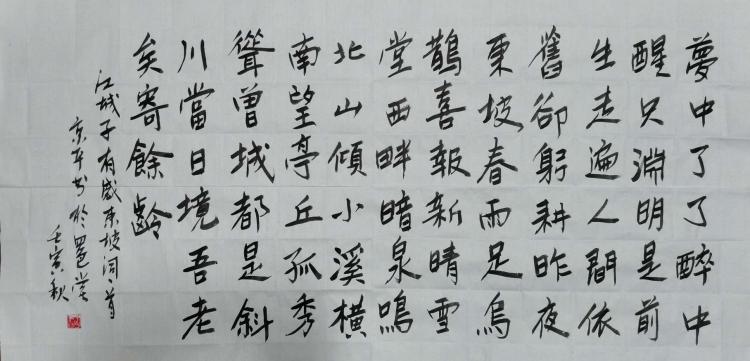 夢中了了醉中
醒只淵明是前
生走遍人間依
舊卻躬耕昨夜
東坡春雨足烏
鵲喜報新晴雪
堂西畔暗泉鳴
北山傾小溪橫
南望亭丘孤秀
聳曾城都是斜
川當日境吾老
矣寄餘齡
江城子有感东坡词一首
书於
壬寅秋